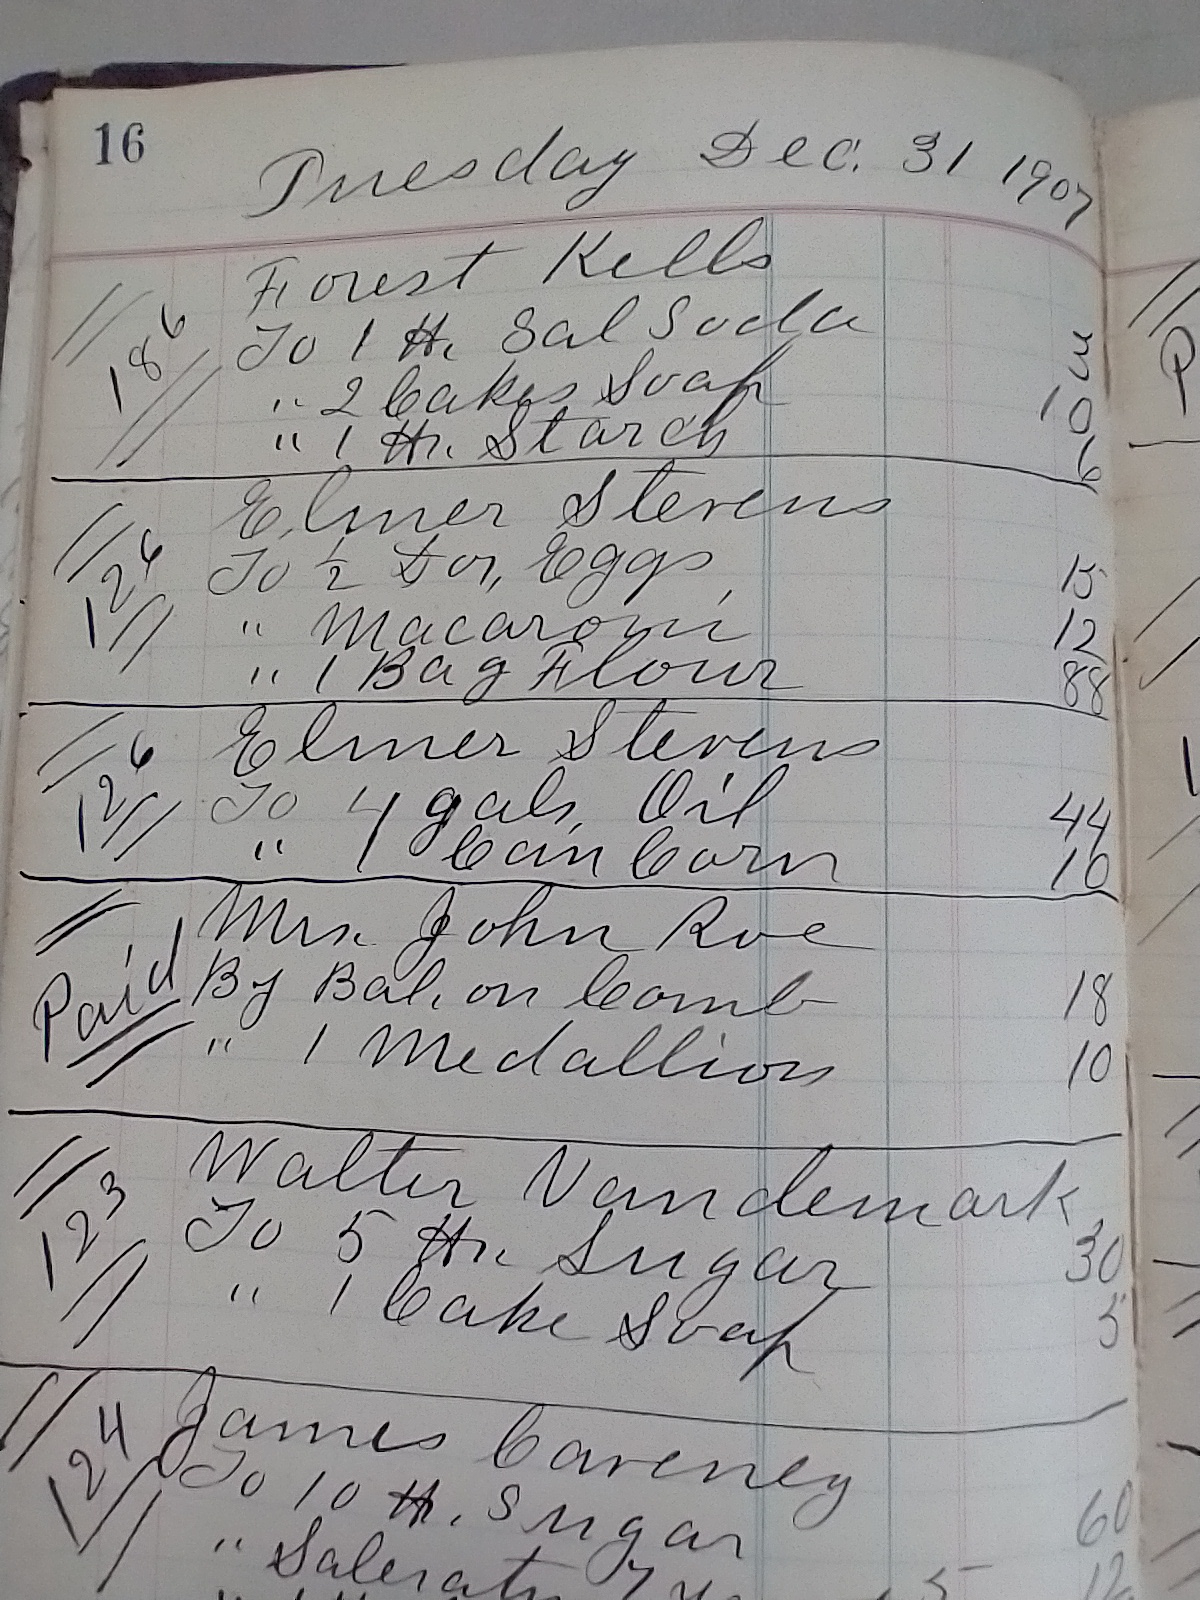 16
Tuesday Dec. 31 1907
Forest Kells
186 To 1 lb. Sal Soda 3
" 2 Cakes Soap 10
" 1 lb. Starch 6
Elmer Stevens
126 To ½ Doz, Eggs, 15
" Macaroni 12
" 1 Bag Flour 88
Elmer Stevens
126 To 4 gals, Oil 44
" 1 Can Corn 10
Mrs. John Roe
Paid By Bal. on Comb 18
" 1 Medallion 10
Walter Vandemark
123 To 5 lb. Sugar 30
" 1 Cake Soap 5
James Caveney
124 To 10 lb. Sugar 60
" Saleratus 5 12